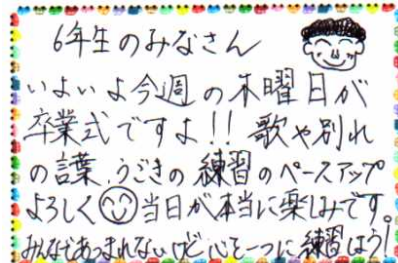 6年生のみなさん
いよいよ今週の木曜日が
卒業式ですよ!! 歌や別れ
の言葉、うごきの練習のペースアップ
よろしく 当日が本当に楽しみです。
みんなであつまれないけど心を一つに練習しよう!